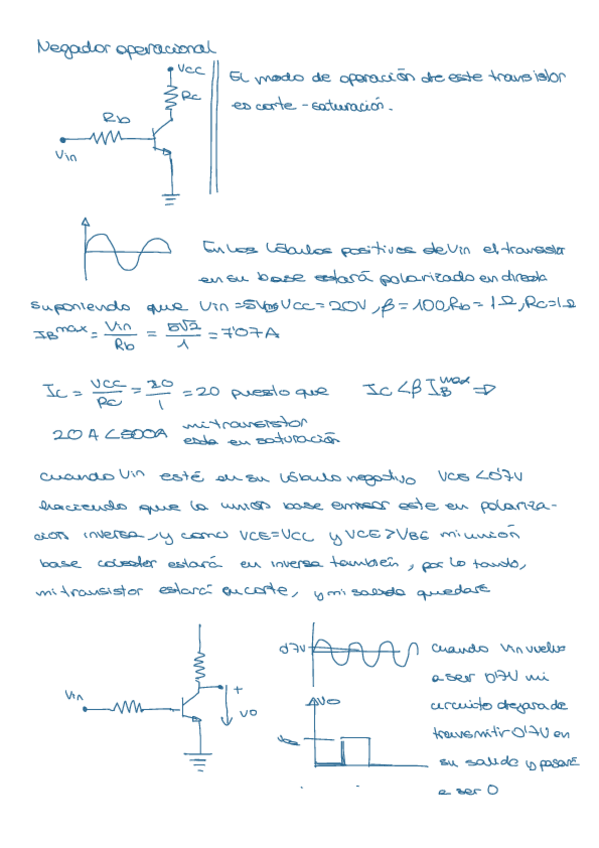 Negador operacional
VCC
Rc
Rb
Vin
El modo de operación de este transistor
es corte-saturación.
En los lóbulos positivos de Vin el transistor
en su base estará polarizado en directa
suponiendo que Vin = VCC=20V, β=100, Rb=1Ω, Rc=1Ω
IB max = Vin/Rb = 5√2/1 = 7'07A
Ic = VCC/RC = 20/1 = 20 puesto que Ic < β IB max ⇒
20A < 500A mi transistor
está en saturación
cuando Vin esté en su lóbulo negativo < 0'7V
haciendo que la unión base emisor este en polariza-
ción inversa, y como VCE=VCC y VCE>VBE mi unión
base colector estará en inversa también, por lo tanto,
mi transistor estará en corte, y mi salida quedará
Vin
+
VO
0'7V
VO
cuando Vin vuelva
a ser 0'7V mi
circuito dejara de
transmitir 0'7V en
su salida y pasará
a ser 0